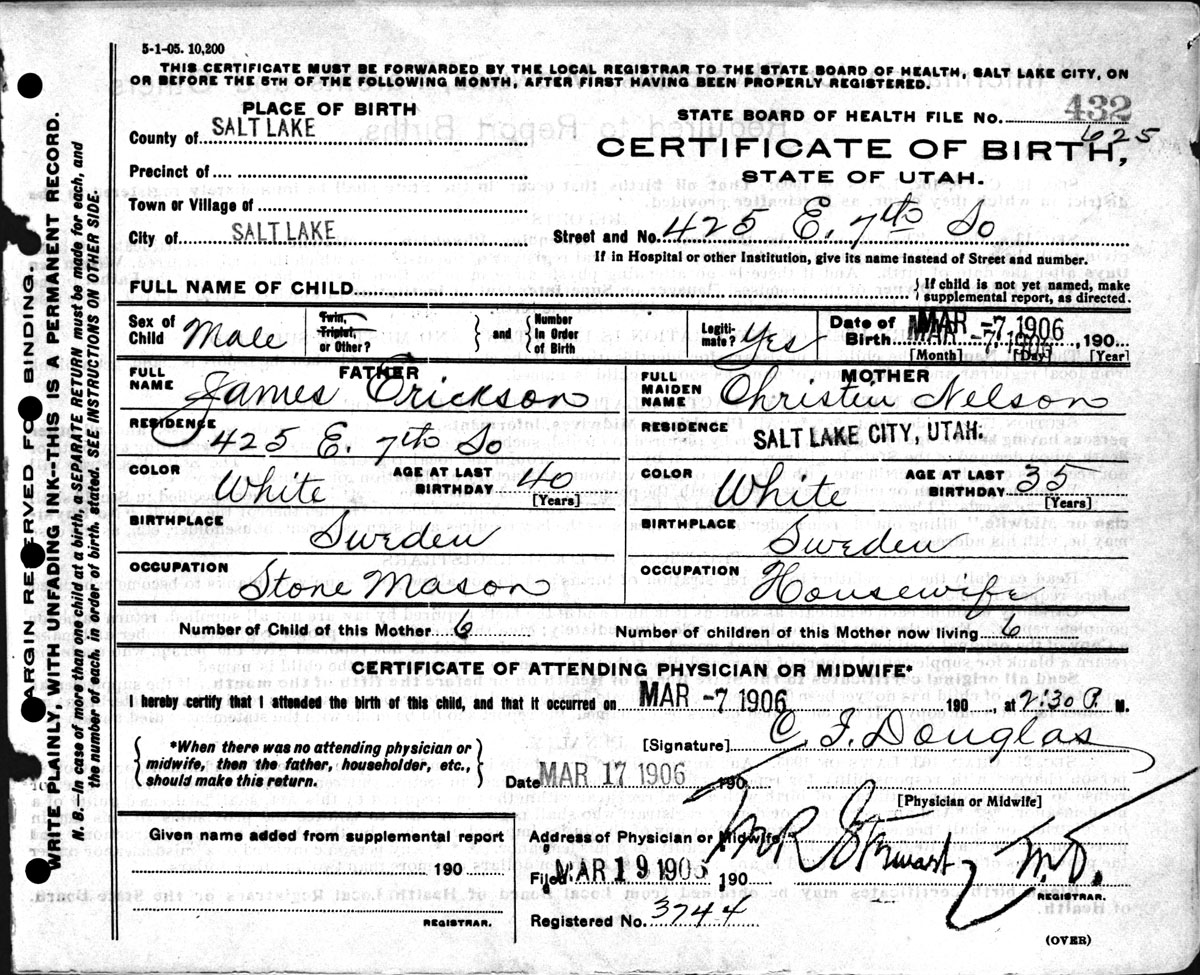 5-1-05. 10,200
THIS CERTIFICATE MUST BE FORWARDED BY THE LOCAL REGISTRAR TO THE STATE BOARD OF HEALTH, SALT LAKE CITY, ON
OR BEFORE THE 5TH OF THE FOLLOWING MONTH, AFTER FIRST HAVING BEEN PROPERLY REGISTERED.
PLACE OF BIRTH
STATE BOARD OF HEALTH FILE NO. 432
625
County of SALT LAKE
CERTIFICATE OF BIRTH,
Precinct of
STATE OF UTAH.
Town or Village of
City of SALT LAKE
Street and No. 425 E. 7th So
If in Hospital or other Institution, give its name instead of Street and number.
FULL NAME OF CHILD
} If child is not yet named, make
supplemental report, as directed.
Sex of Child Male
Twin, Triplet, or Other?
} and { Number in Order of Birth
Legiti-mate? Yes
Date of Birth MAR -7 1906 , 190
1906
[Month] [Day] [Year]
FATHER
FULL NAME James Erickson
RESIDENCE 425 E. 7th So
COLOR White AGE AT LAST BIRTHDAY 40
[Years]
BIRTHPLACE Sweden
OCCUPATION Stone Mason
MOTHER
FULL MAIDEN NAME Christin Nelson
RESIDENCE SALT LAKE CITY, UTAH.
COLOR White AGE AT LAST BIRTHDAY 35
[Years]
BIRTHPLACE Sweden
OCCUPATION Housewife
Number of Child of this Mother 6 Number of children of this Mother now living 6
CERTIFICATE OF ATTENDING PHYSICIAN OR MIDWIFE*
I hereby certify that I attended the birth of this child, and that it occurred on MAR -7 1906 190 , at 2:30 P. M.
{ *When there was no attending physician or
midwife, then the father, householder, etc.,
should make this return. }
[Signature] C. F. Douglas
Date MAR 17 1906 190
[Physician or Midwife]
Given name added from supplemental report
190
REGISTRAR.
Address of Physician or Midwife
Filed MAR 19 1906 , 190
M R Stewart M.D.
REGISTRAR.
Registered No. 3744
(OVER)
MARGIN RESERVED FOR BINDING.
WRITE PLAINLY WITH UNFADING INK--THIS IS A PERMANENT RECORD.
N. B.--In case of more than one child at a birth, a SEPARATE RETURN must be made for each, and
the number of each, in order of birth, stated. SEE INSTRUCTIONS ON OTHER SIDE.